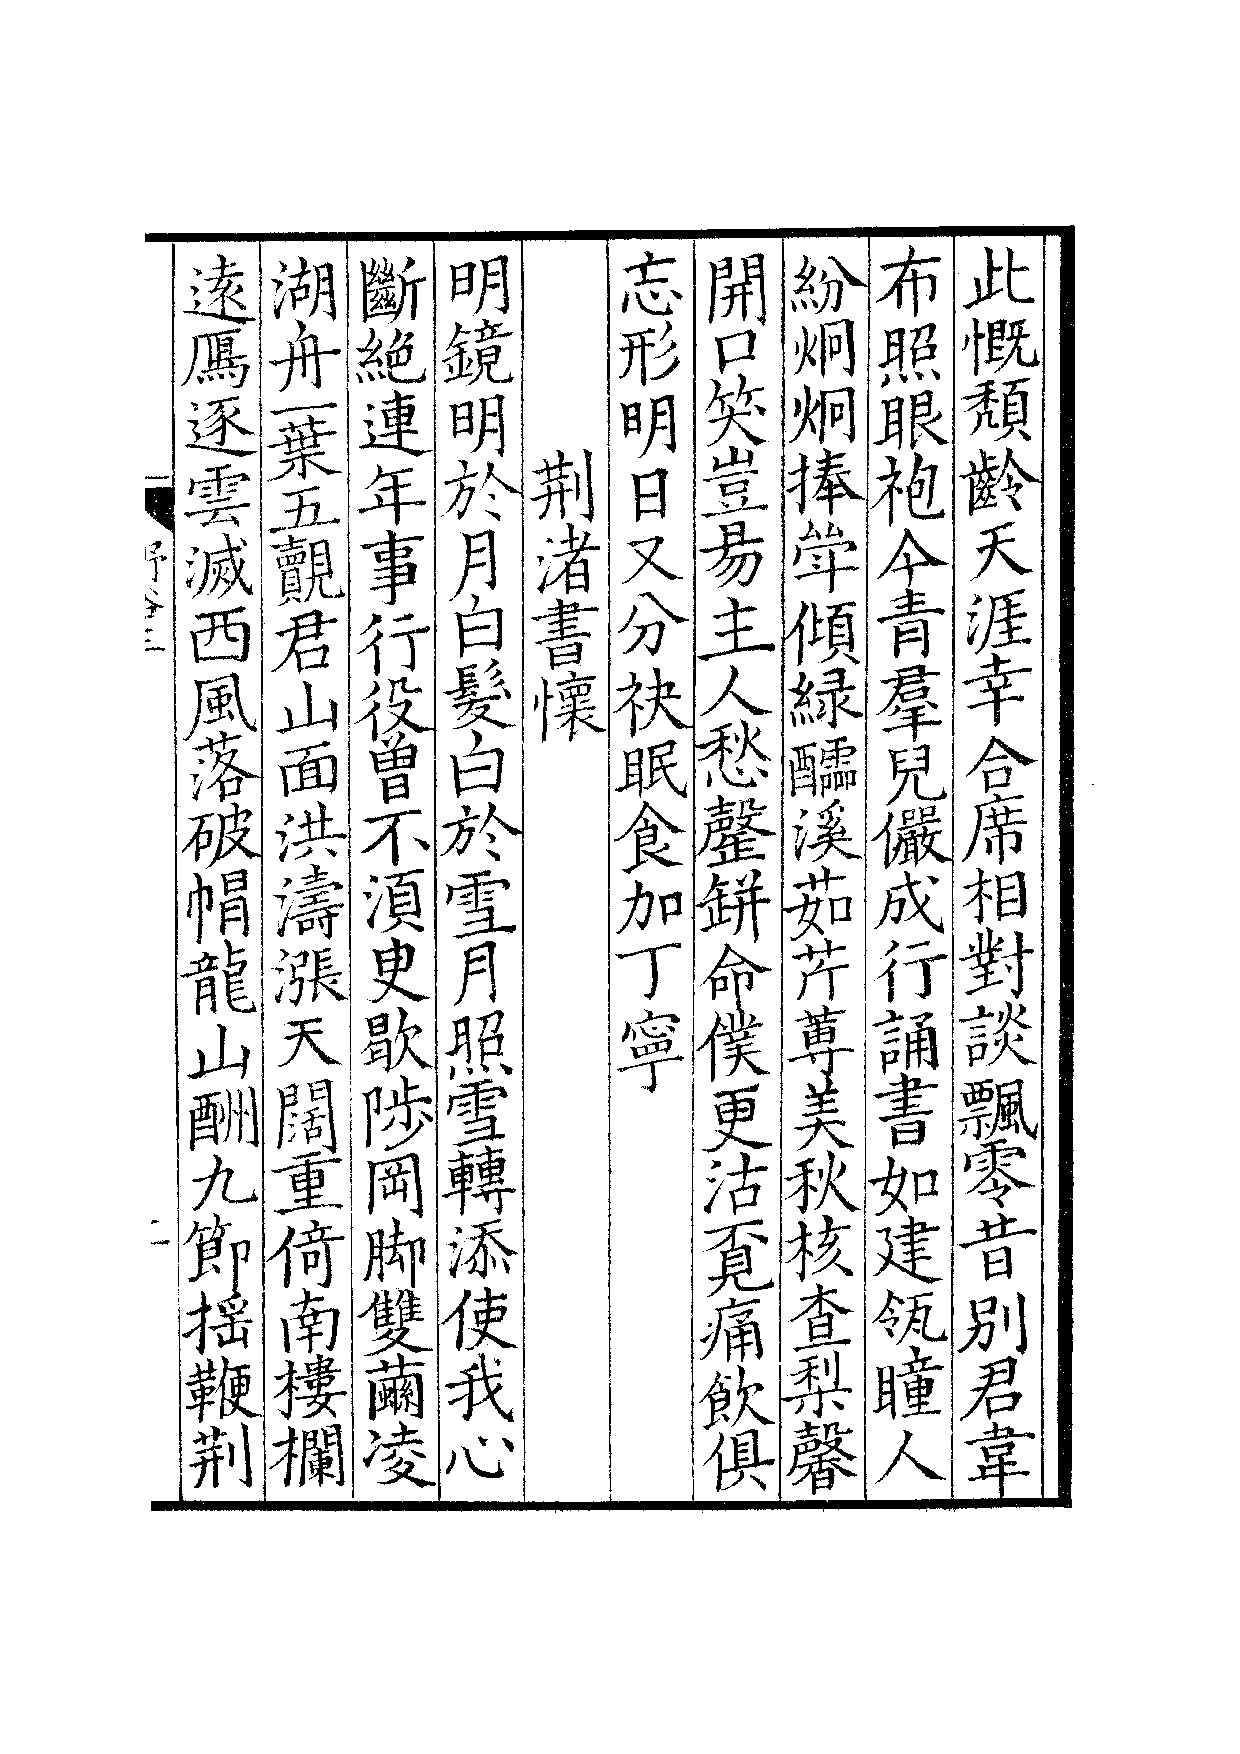 此慨頹齡天涯幸合席相對談飄零昔別君韋
布照眼袍今青羣兒儼成行誦書如建瓴瞳人
紛炯炯捧斝傾綠醽溪茹芹蓴美秋核查梨馨
開口笑豈易主人愁罄缾命僕更沽覔痛飲俱
忘形明日又分袂眠食加丁寧
荆渚書懷
明鏡明於月白髮白於雪月照雪轉添使我心
斷絕連年事行役曾不須臾歇陟岡脚雙繭凌
湖舟一葉五覿君山面洪濤漲天闊重倚南樓欄
遠鴈逐雲滅西風落破帽龍山酬九節揺鞭荆